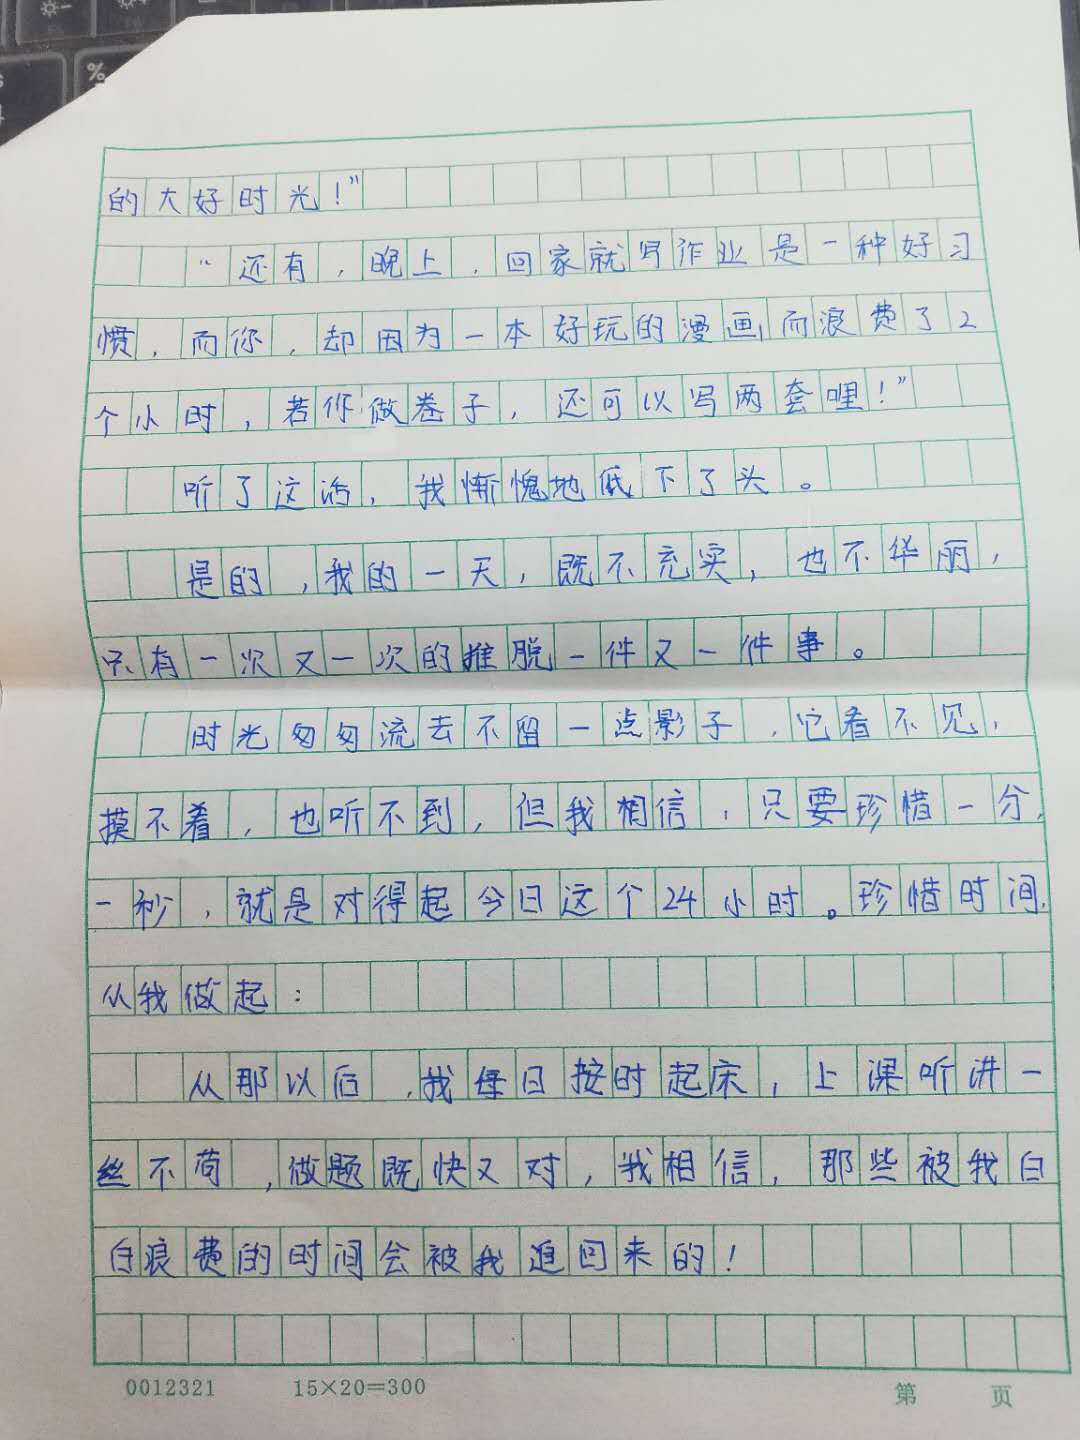 的大好时光！”
“还有，晚上，回家就写作业是一种好习
惯，而你，却因为一本好玩的漫画而浪费了2
个小时，若你做卷子，还可以写两套哩！”
听了这话，我惭愧地低下了头。
是的，我的一天，既不充实，也不华丽，
只有一次又一次的推脱一件又一件事。
时光匆匆流去不留一点影子，它看不见，
摸不着，也听不到，但我相信，只要珍惜一分，
一秒，就是对得起今日这个24小时。珍惜时间，
从我做起：
从那以后，我每日按时起床，上课听讲一
丝不苟，做题既快又对，我相信，那些被我白
白浪费的时间会被我追回来的！
0012321 15×20=300 第 页